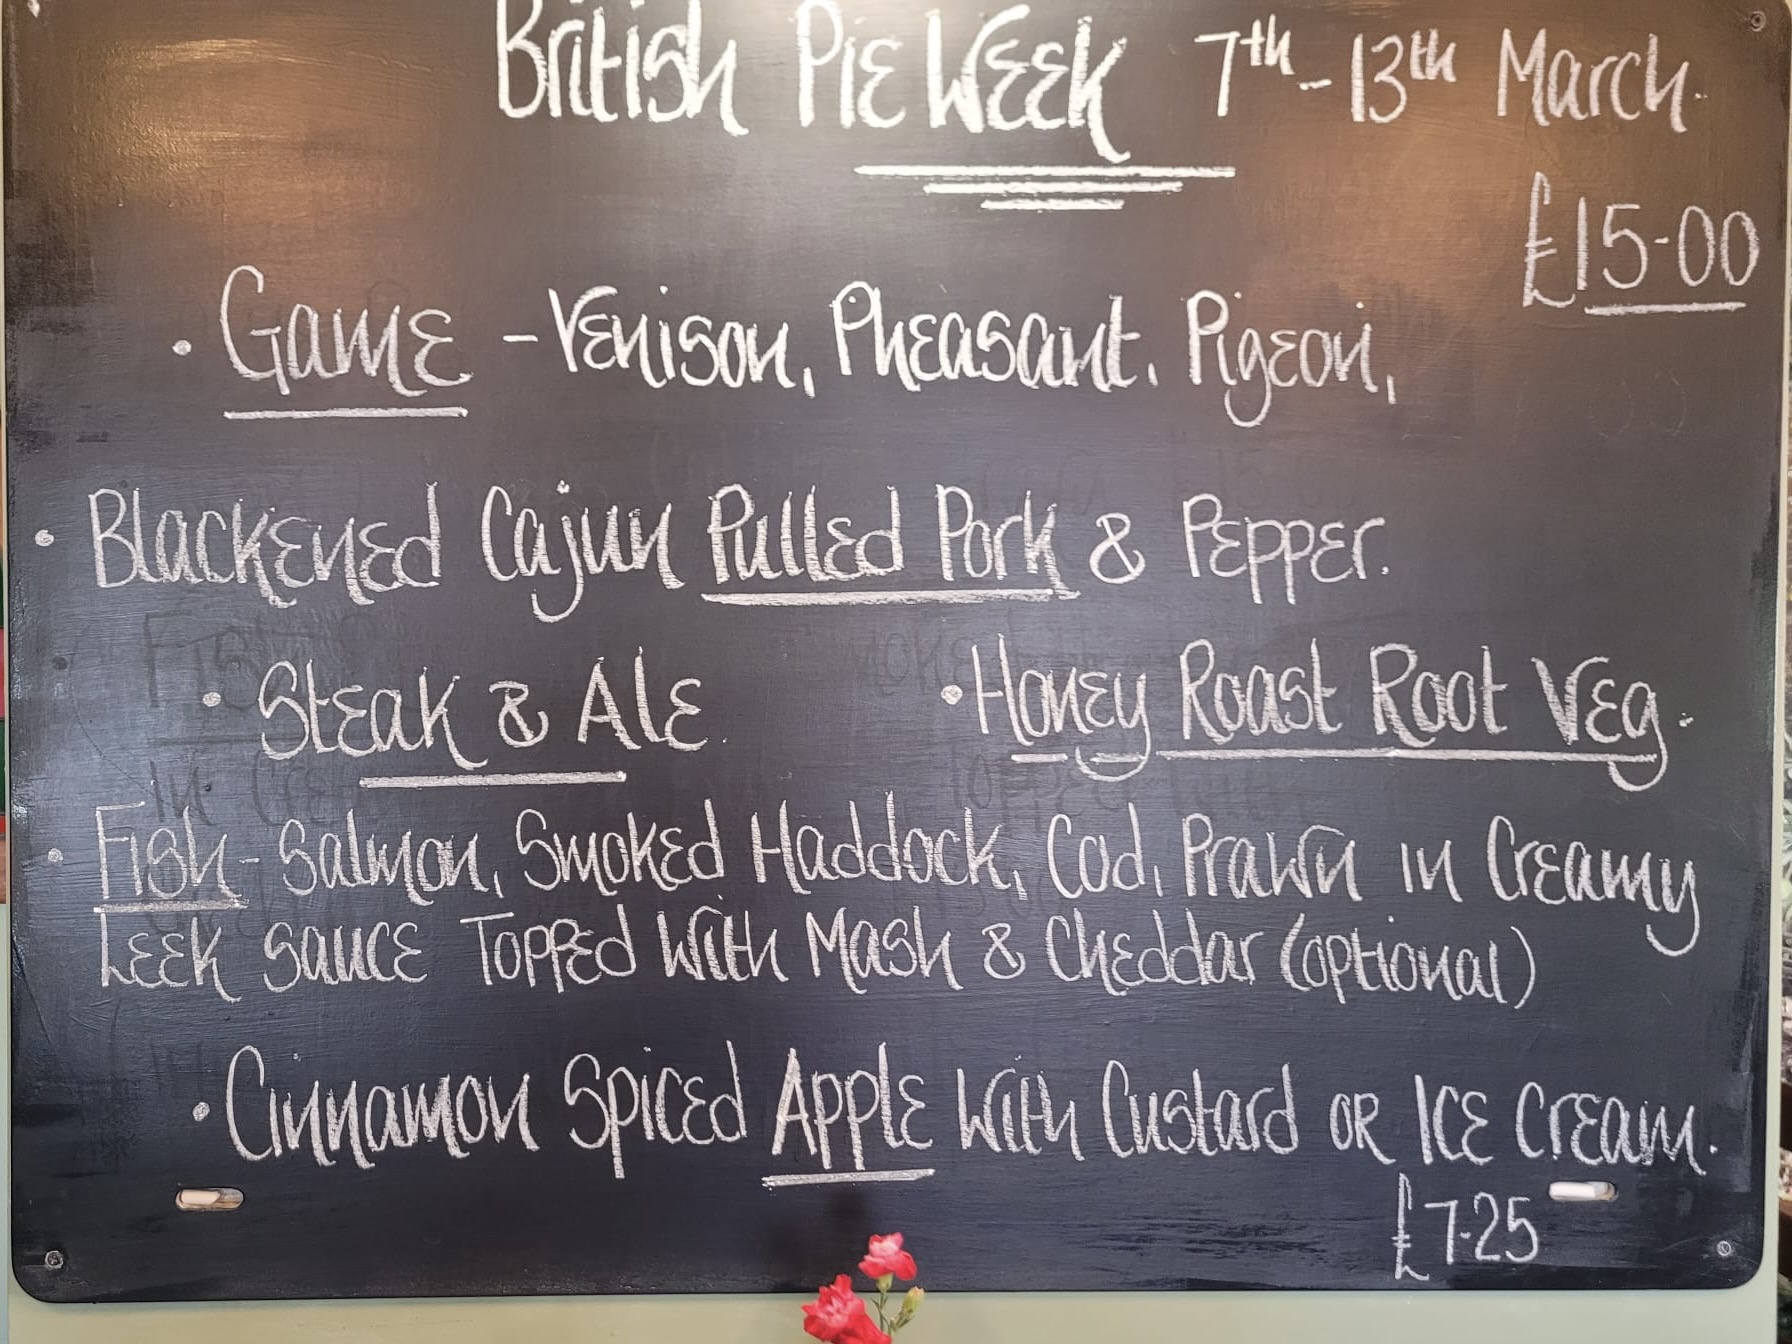 British Pie Week 7th - 13th March.
£15-00
• Game - Venison, Pheasant, Pigeon,
• Blackened Cajun Pulled Pork & Pepper.
• Steak & Ale. • Honey Roast Root Veg.
• Fish - Salmon, Smoked Haddock, Cod, Prawn in Creamy
Leek Sauce Topped With Mash & Cheddar (optional)
• Cinnamon Spiced Apple With Custard OR Ice Cream.
£7-25